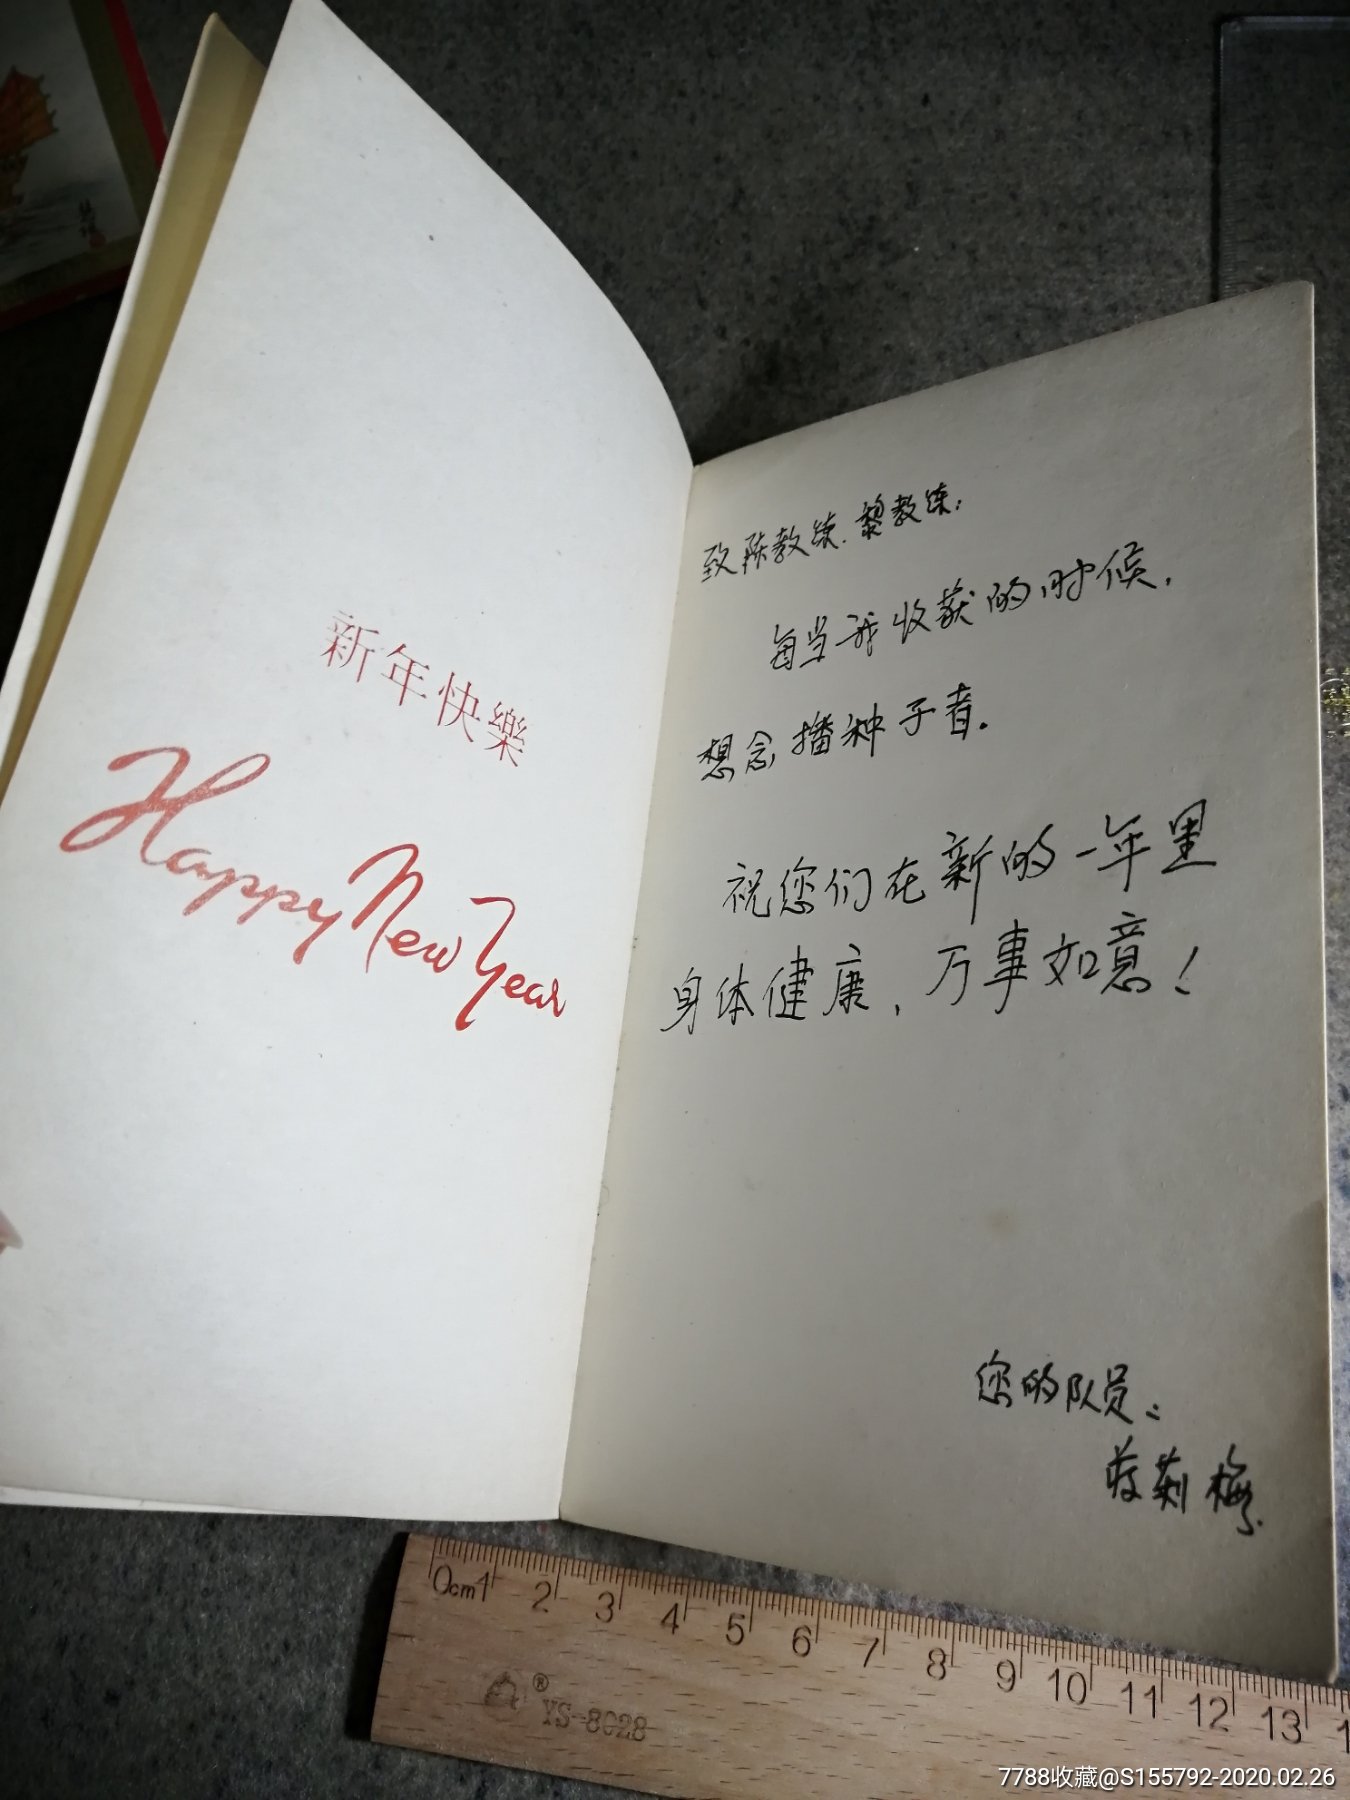 新年快樂
Happy New Year
致陈教练.黎教练:
每当我收获的时候,
想念播种子者。
祝您们在新的一年里
身体健康,万事如意!
您的队员:
梅
0cm1 2 3 4 5 6 7 8 9 10 11 12 13
® YS-8028
7788收藏@S155792-2020.02.26